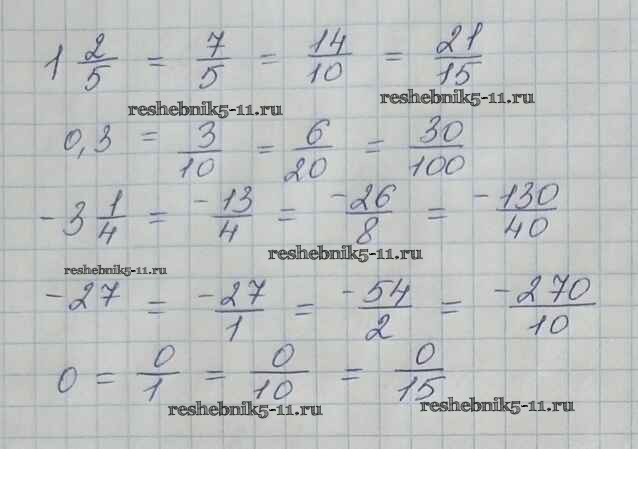 1 2/5 = 7/5 = 14/10 = 21/15
reshebnik5-11.ru reshebnik5-11.ru
0,3 = 3/10 = 6/20 = 30/100
-3 1/4 = -13/4 = -26/8 = -130/40
reshebnik5-11.ru
reshebnik5-11.ru
-27 = -27/1 = -54/2 = -270/10
0 = 0/1 = 0/10 = 0/15
reshebnik5-11.ru reshebnik5-11.ru